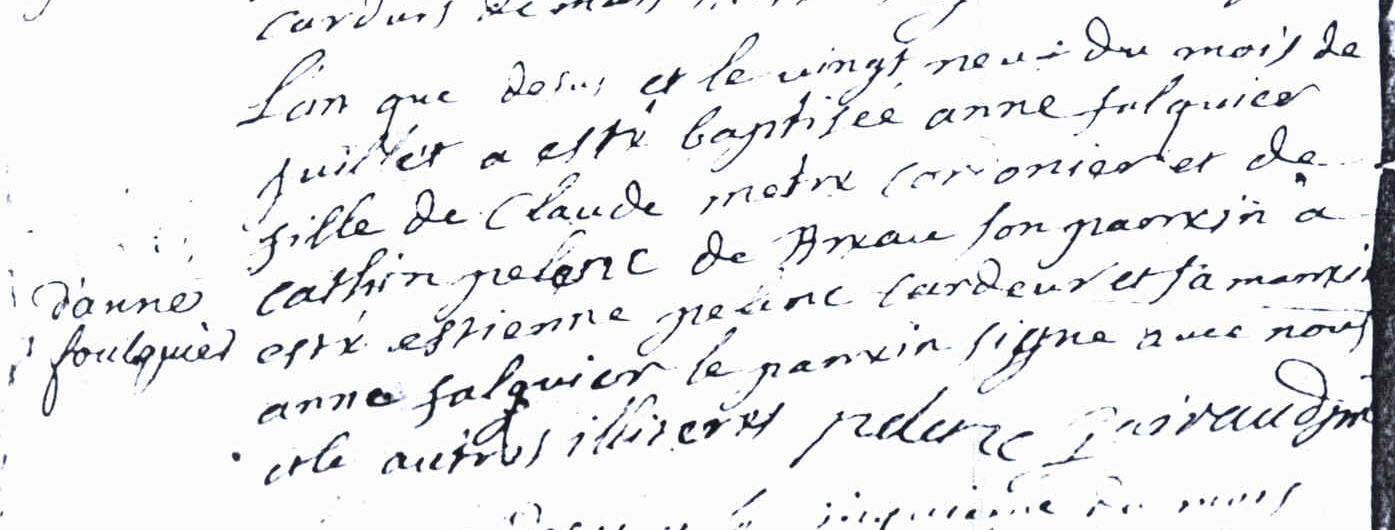 cardurs de
L'an que desus et le vingt neuf du mois de
juillet a esté baptisée anne fulquier
fille de Claude metre cordonier et de
cathin pelenc de son parrin a
d'anne
esté estienne pelenc cardeur et sa marrin
foulquier
anne falquier le parrin signe avec nous
et le autres illiteres pelenc Guiraud
le du mois